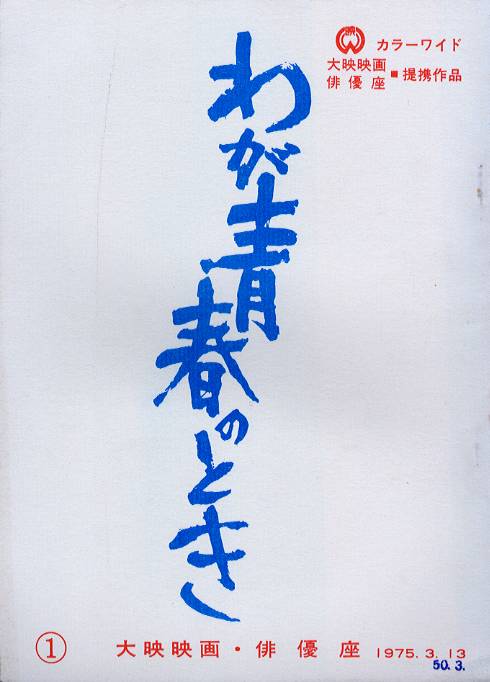 カラーワイド
大映映画
俳優座
■提携作品
わが青春のとき
① 大映映画・俳優座 1975.3.13
50.3.